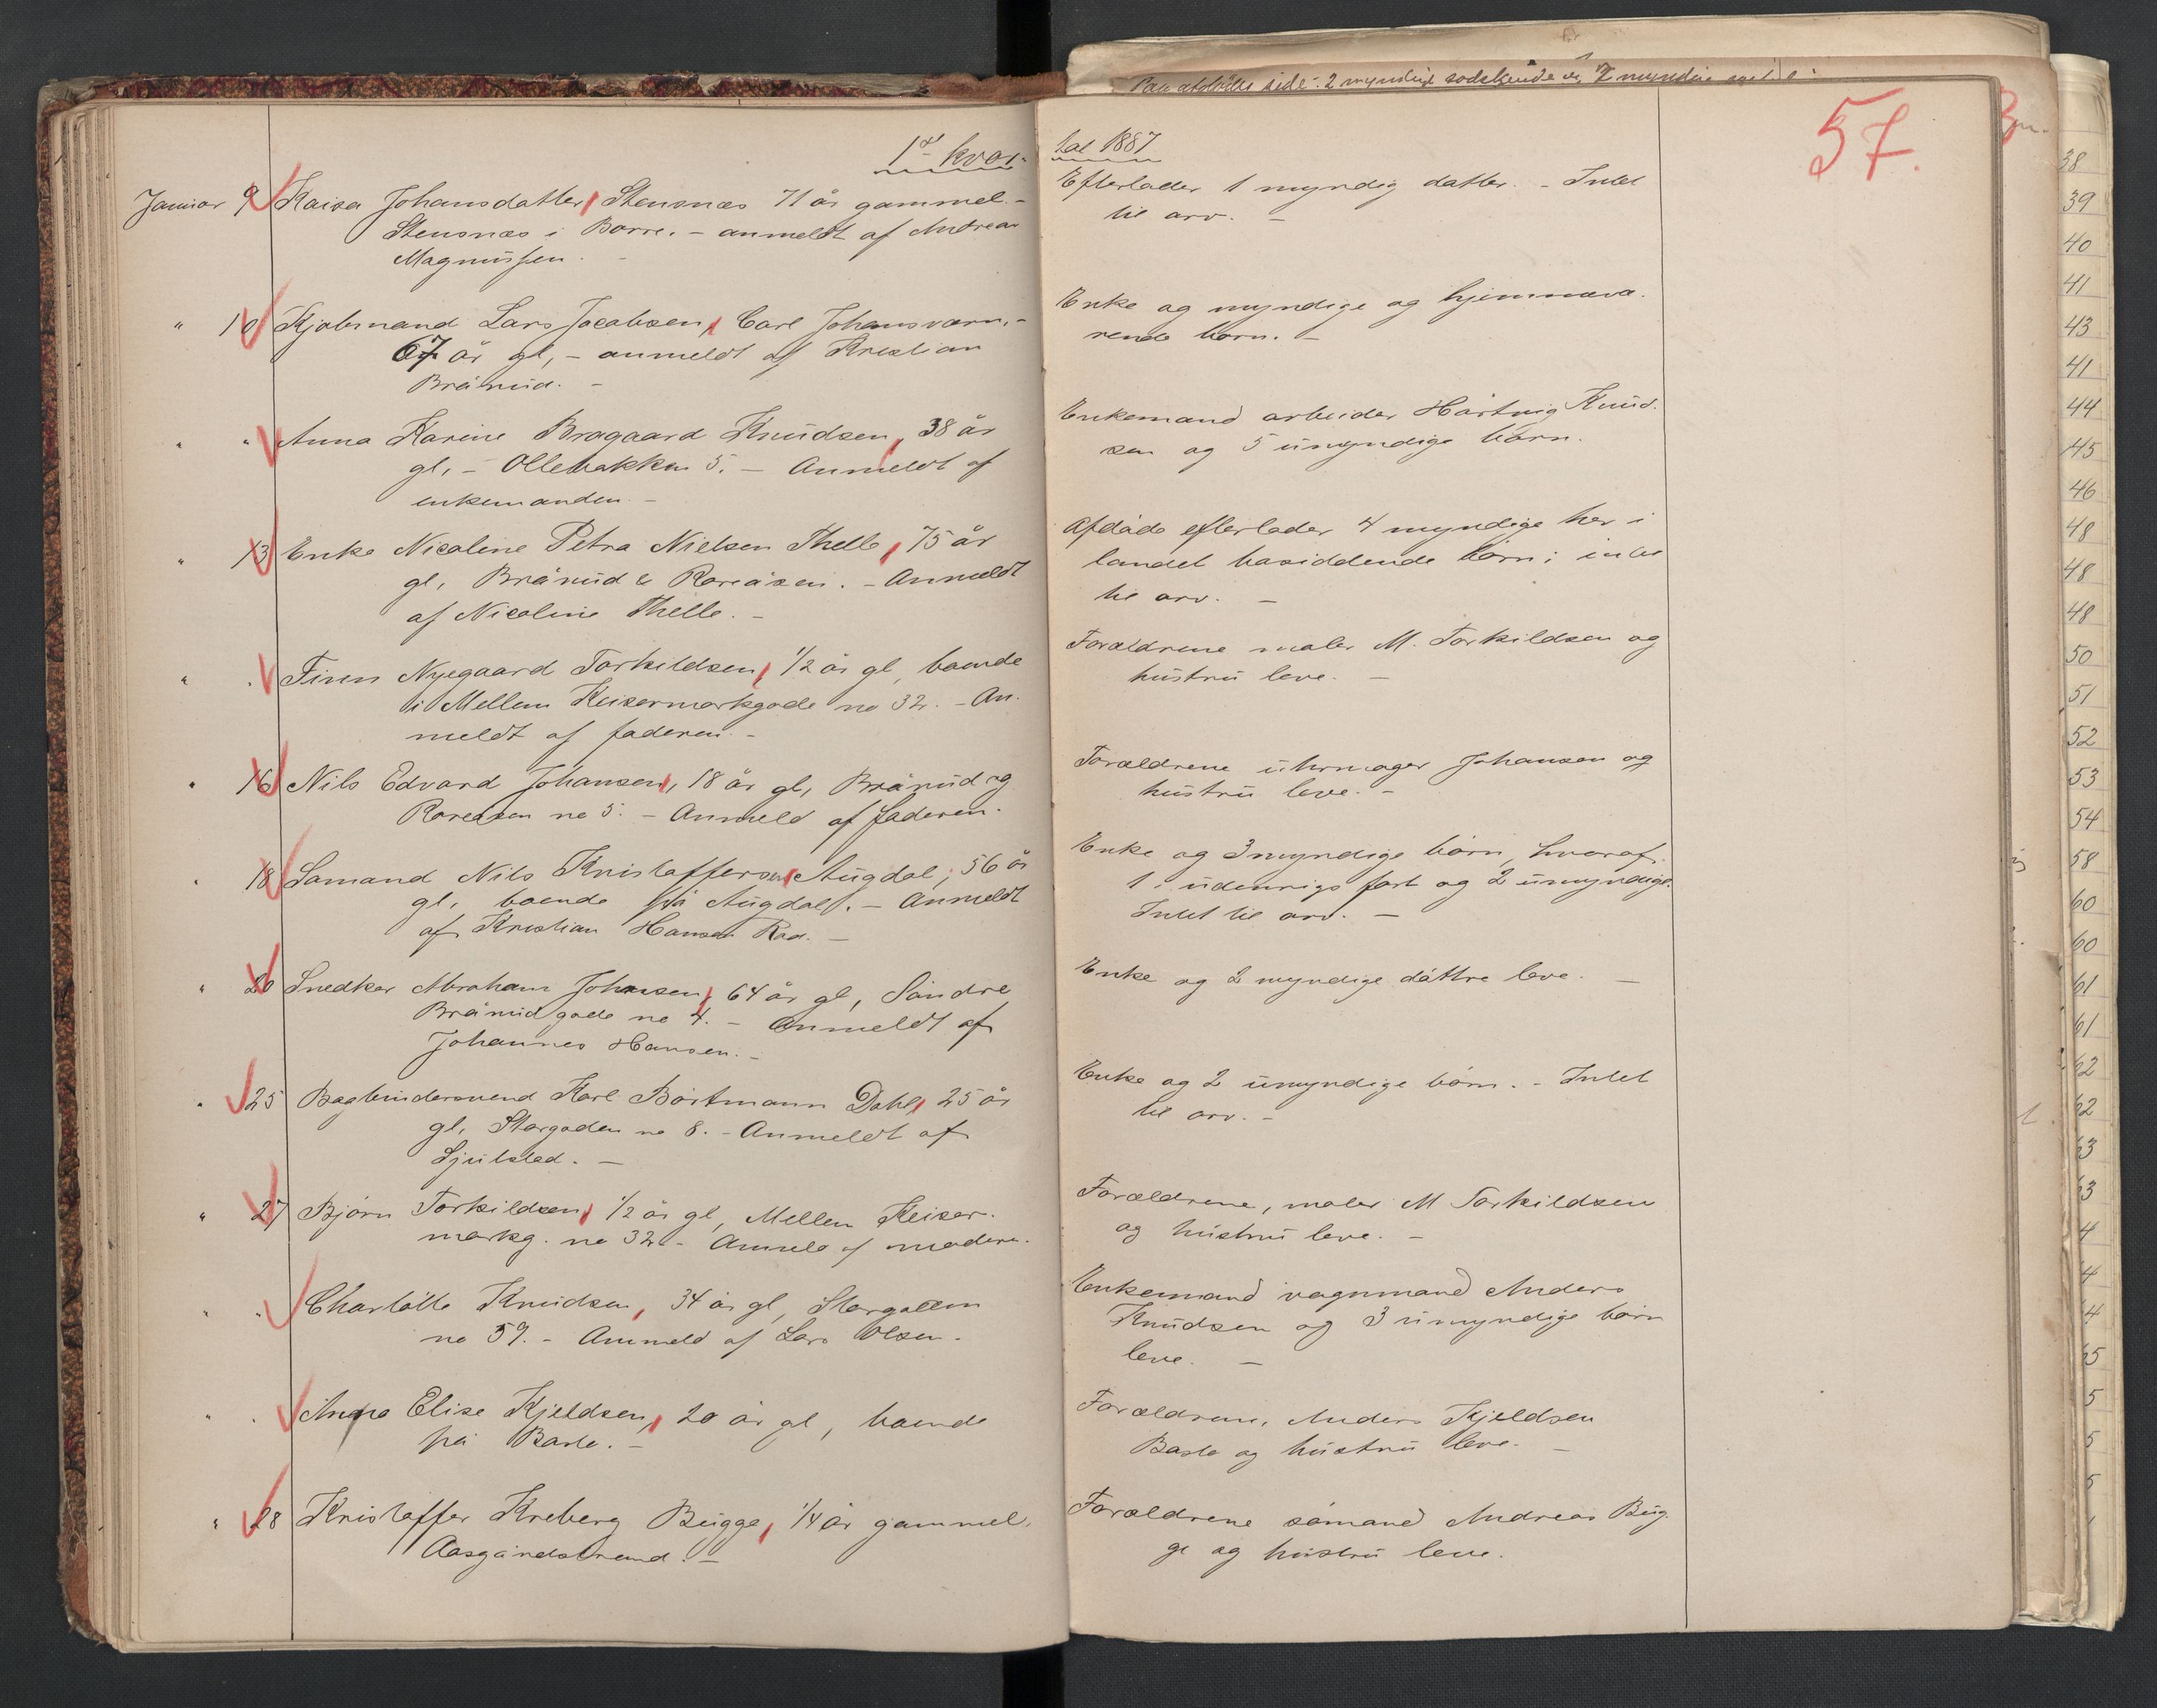 1ste kvar-
Januar 9 Kaisa Johansdatter, Stensnæs 71 år gammel. -
Stensnæs i Borre. - anmeldt af Andreas
Magnussen. -
" 10 Kjøbmand Lars Jacobsen, Carl Johansværn, -
67 år gl, - anmeldt af Kristian
Bråmud. -
" " Anna Karine Bragaard Knudsen, 38 år
gl, - Ollebakken 5. - Anmeldt af
enkemanden. -
" 13 Enke Nicoline Petra Nielsen Thelle, 75 år
gl, Brårud & Roreåsen. - Anmeldt
af Nicoline Thelle. -
" " Finn Nyegaard Torkildsen, 1/2 år gl, boende
i Mellem Keisermarkgade no 32. - An-
meldt af faderen. -
" 16 Nils Edvard Johansen, 18 år gl, Brårud og
Roreåsen no 5. - Anmeld af faderen.
" 18 Sømand Nils Kristoffersen Augdal, 56 år
gl, boende på Augdal. - Anmeldt
af Kristian Hansen Rød. -
" 20 Snedker Abraham Johnsen, 64 år gl, Søndre
Brårudgade no 4. - Anmeldt af
Johannes Hansen. -
" 25 Bogbindersvend Karl Bårtmann Dahl, 25 år
gl, Storgaden no 8. - Anmeldt af
Gjulstad. -
" 27 Bjørn Torkildsen, 1/2 år gl, Mellem Keiser-
markg. no 32 - Anmeld af moderen.
" " Charlotte Knudsen, 34 år gl, Storgaden
no 59. - Anmeld af Lars Olsen.
" " Anna Elise Kjeldsen, 20 år gl, boende
på Basle. -
" 28 Kristoffer Kreberg Bugge, 1/4 år gammel,
Aasgårdstrand. -
Paa afskilte side: 2 myndige sødskende og 2 myndige
57.
tal 1887
Efterlader 1 myndig datter. - Intet
til arv. -
Enke og myndige og hjemmevæ-
rende børn. -
Enkemand arbeider Hartvig Knud-
sen og 5 umyndige børn.
Afdøde efterlader 4 myndige her i
landet bosiddende børn; intet
til arv. -
Forældrene maler M. Torkildsen og
hustru leve. -
Forældrene uhrmager Johansen og
hustru leve. -
Enke og 3 myndige børn, hvoraf
1 i udenrigs fart og 2 umyndige.
Intet til arv. -
Enke og 2 myndige døttre leve. -
Enke og 2 umyndige børn. - Intet
til arv. -
Forældrene, maler M Torkildsen
og hustru leve. -
Enkemand vognmand Anders
Knudsen og 3 umyndige børn
leve. -
Forældrene, Anders Kjeldsen
Basle og hustru leve. -
Forældrene sømand Andreas Bug-
ge og hustru leve.
38
39
40
41
43
41
44
45
46
48
48
48
50
51
52
53
54
58
60
60
61
61
62
62
63
63